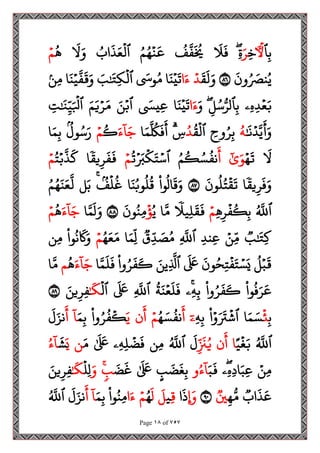 بِالَاخِرَةِ فَلَا يُخَفَّفُ عَنْهُمُ الْعَذَابُ وَلَا هُمْ
يُنصَرُونَ ٨٦ وَلَقَدْ ءَاتَيْنَا مُوسَى الْكِتَٰبَ وَقَفَّيْنَا مِنۢ
بَعْدِهِۦ بِالرُّسُلِ وَءَاتَيْنَا عِيسَى ابْنَ مَرْيَمَ الْبَيِّنَٰتِ
وَأَيَّدْنَٰهُ بِرُوحِ الْقُدُسِ أَفَكُلَّمَا جَآءَكُمْ رَسُولُۢ بِمَا
لَا تَهْوَىٰ أَنفُسُكُمُ اسْتَكْبَرْتُمْ فَفَرِيقًا كَذَّبْتُمْ
وَفَرِيقًا تَقْتُلُونَ ٨٧ وَقَالُوا قُلُوبُنَا غُلْفُۢ بَل لَّعَنَهُمُ
اللَّهُ بِكُفْرِهِمْ فَقَلِيلًا مَّا يُؤْمِنُونَ ٨٨ وَلَمَّا جَآءَهُمْ
كِتَٰبٌ مِّنْ عِندِ اللَّهِ مُصَدِّقٌ لِّمَا مَعَهُمْ وَكَانُوا مِن
قَبْلُ يَسْتَفْتِحُونَ عَلَى الَّذِينَ كَفَرُوا فَلَمَّا جَآءَهُم مَّا
عَرَفُوا كَفَرُوا بِهِۦ فَلَعْنَةُ اللَّهِ عَلَى الْكَٰفِرِينَ ٨٩
بِئْسَمَا اشْتَرَوْا بِهِۦٓ أَنفُسَهُمْ أَن يَكْفُرُوا بِمَآ أَنزَلَ
اللَّهُ بَغْيًا أَن يُنَزِّلَ اللَّهُ مِن فَضْلِهِۦ عَلَىٰ مَن يَشَآءُ
مِنْ عِبَادِهِۦ فَبَآءُو بِغَضَبٍ عَلَىٰ غَضَبٍ وَلِلْكَٰفِرِينَ
عَذَابٌ مُّهِينٌ ٩٠ وَإِذَا قِيلَ لَهُمْ ءَامِنُوا بِمَآ أَنزَلَ اللَّهُ
Page ١٨ of ٧٥٧